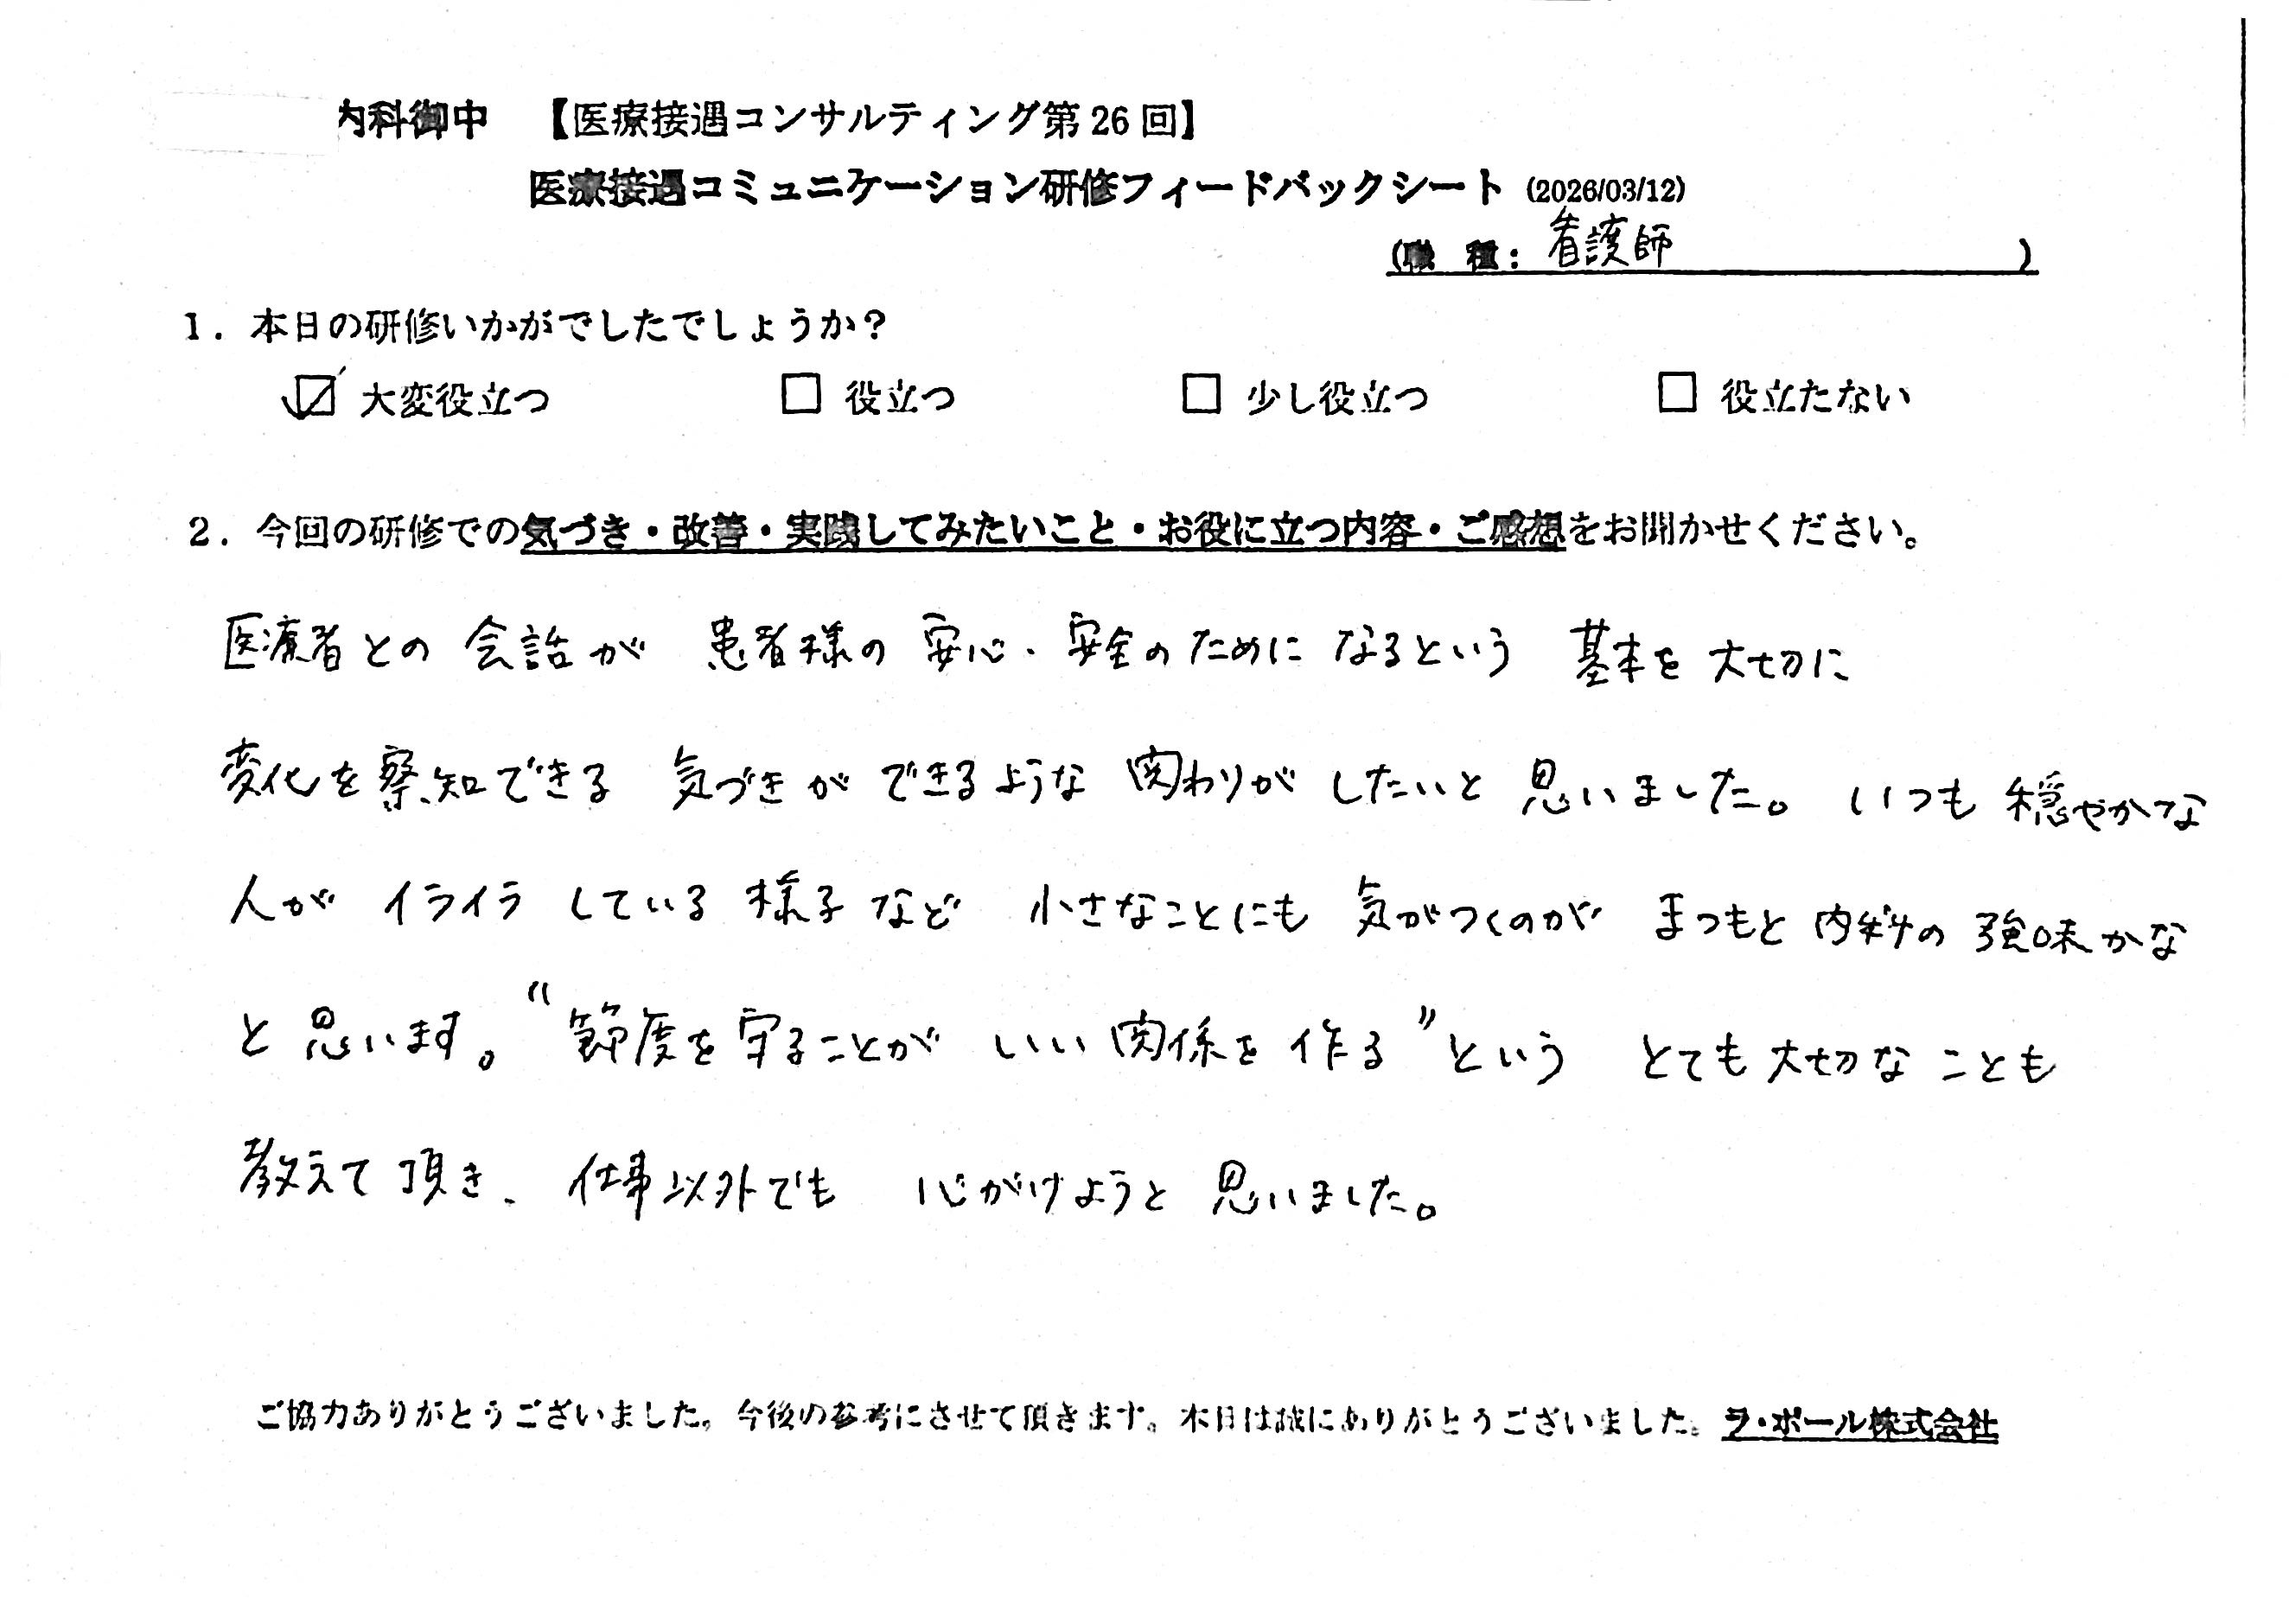 内科御中　【医療接遇コンサルティング第26回】
医療接遇コミュニケーション研修フィードバックシート (2026/03/12)
(職　種：看護師　)
1．本日の研修いかがでしたでしょうか？
☑ 大変役立つ　□ 役立つ　□ 少し役立つ　□ 役立たない
2．今回の研修での気づき・改善・実践してみたいこと・お役に立つ内容・ご感想をお聞かせください。
医療者との会話が患者様の安心・安全のためになるという基本を大切に
変化を察知できる気づきができるような関わりがしたいと思いました。いつも穏やかな
人がイライラしている様子など小さなことにも気がつくのがまつもと内科の強味かな
と思います。“節度を守ることがいい関係を作る”というとても大切なことも
教えて頂き、仕事以外でも心がけようと思いました。
ご協力ありがとうございました。今後の参考にさせて頂きます。本日は誠にありがとうございました。ラ・ポール株式会社